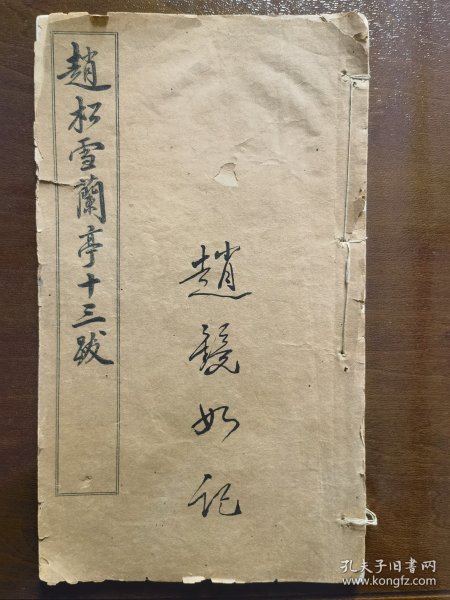 趙松雪蘭亭十三跋
趙鏡如記
孔夫子旧书网
www.kongfz.com